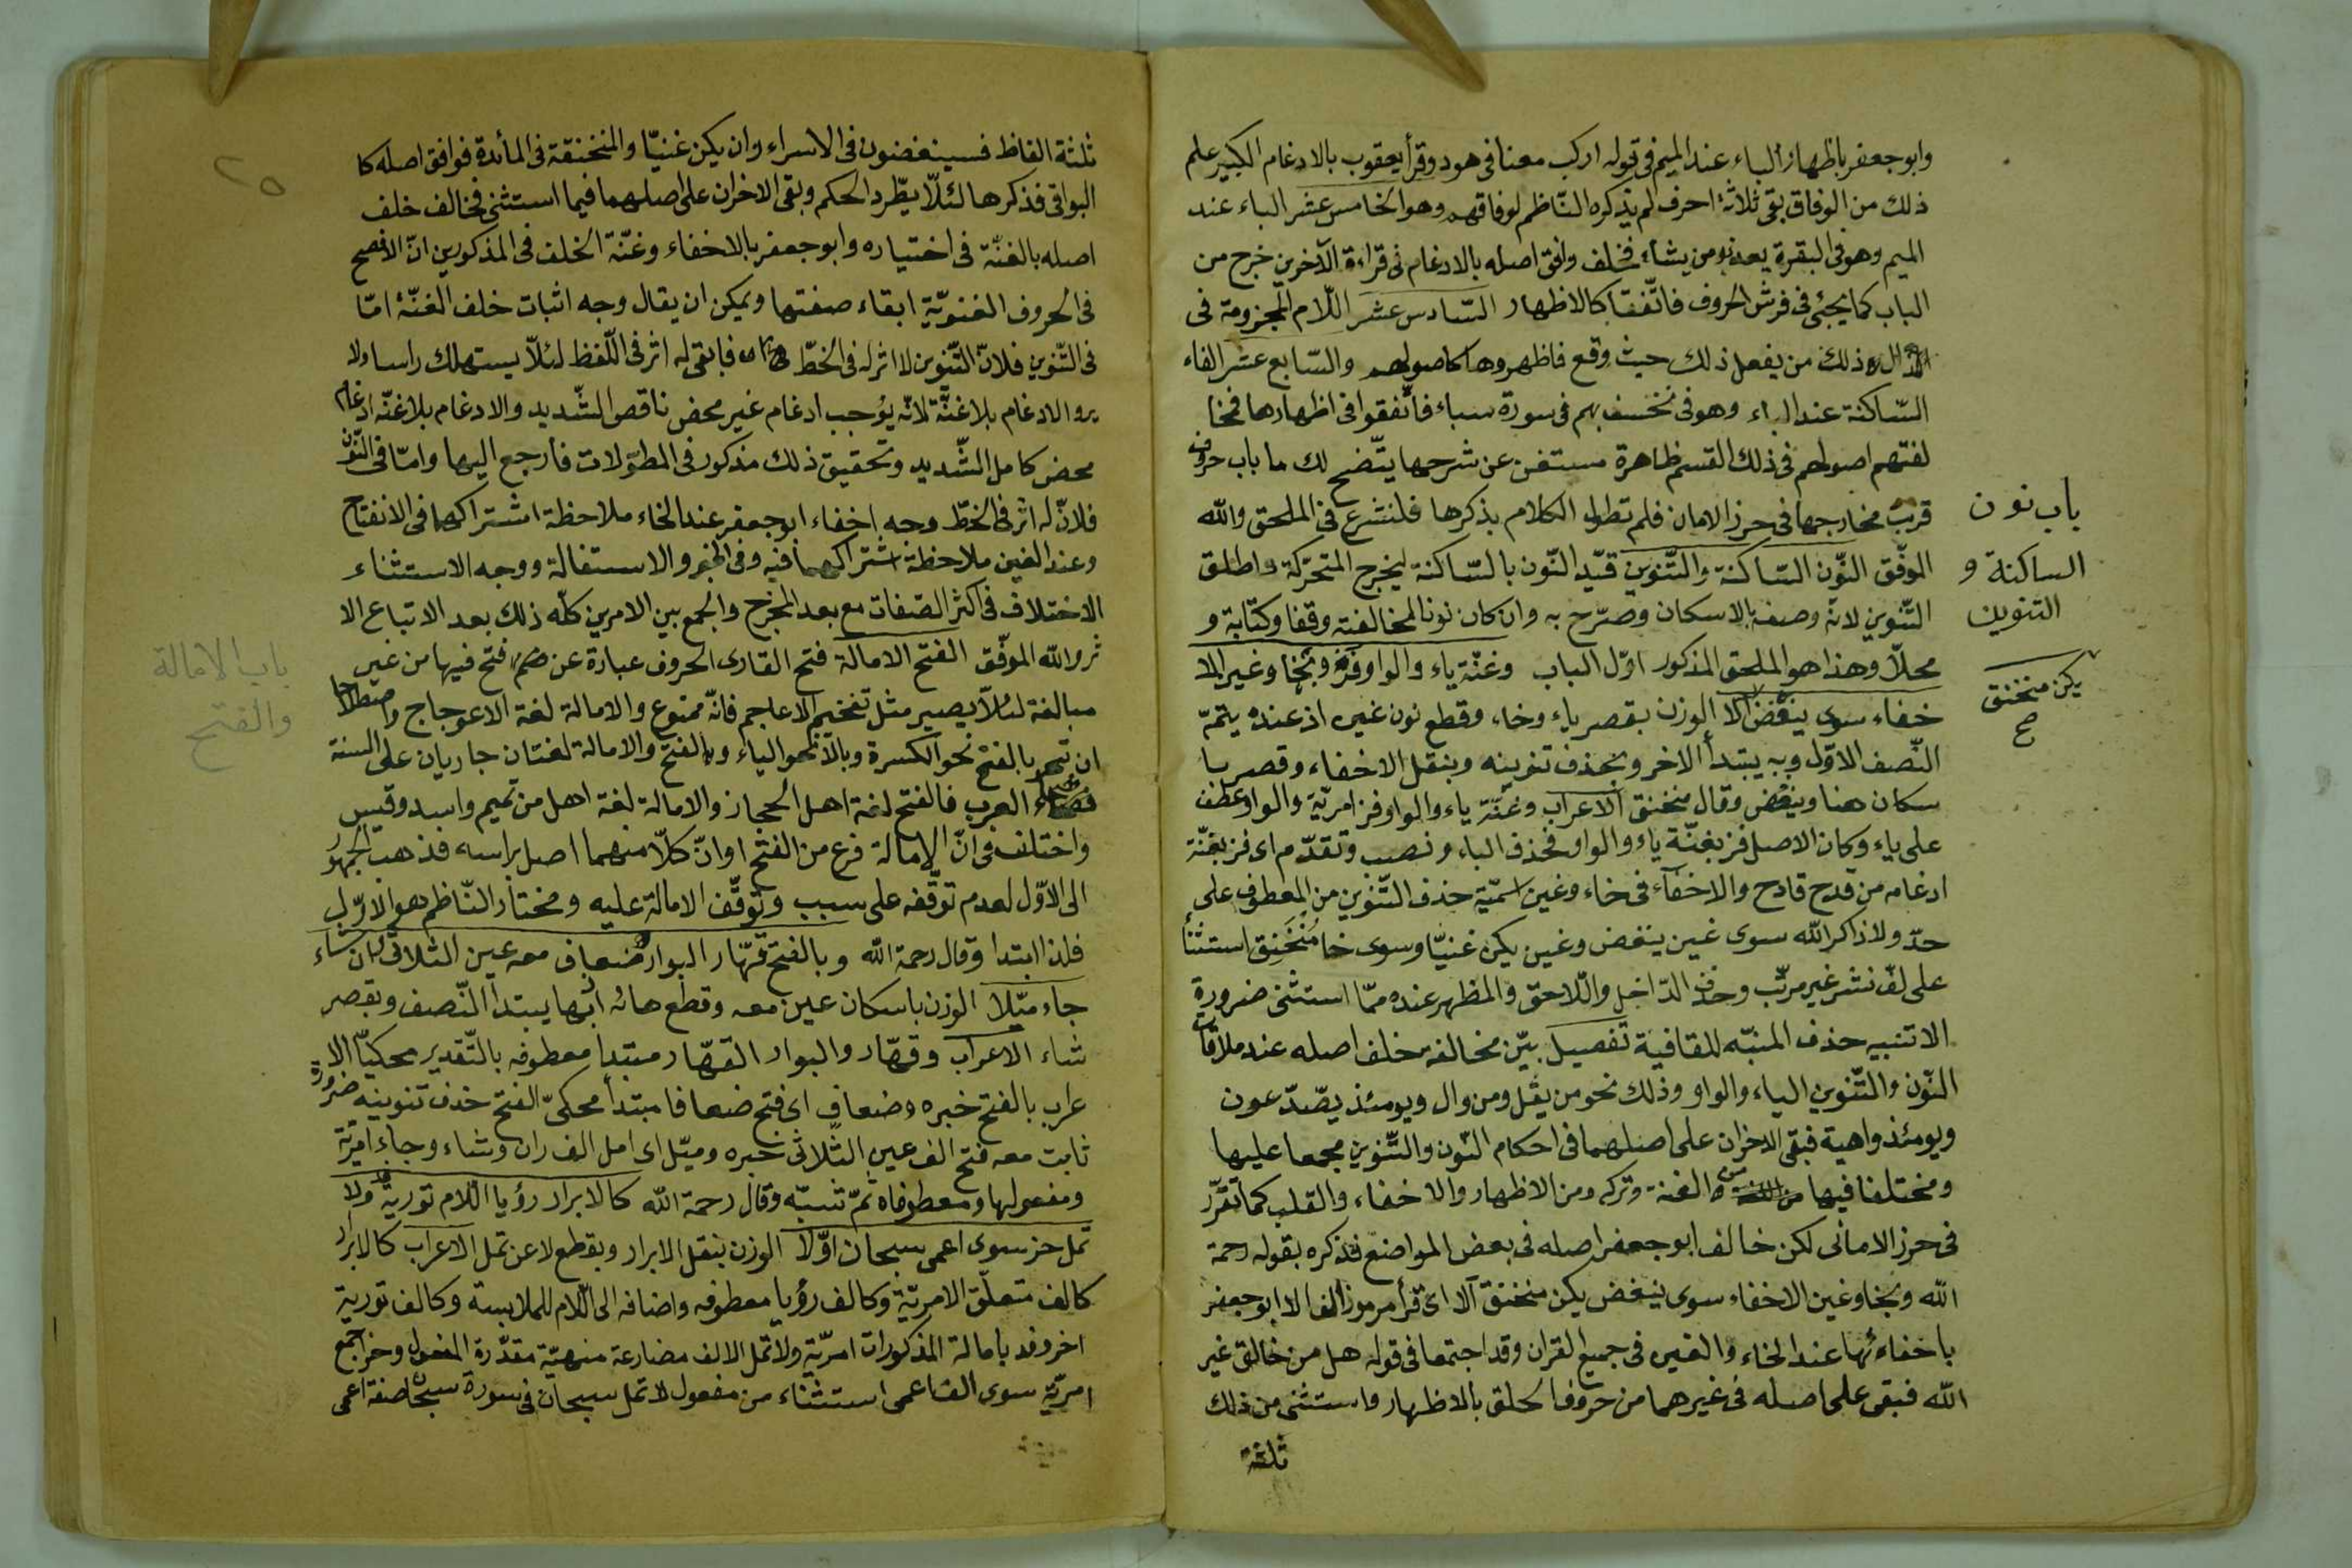 وابو جعفر باظهار الباء عند الميم فى قوله اركب معنا فى هود وقرأ يعقوب بالادغام الكبير علم
ذلك من الوفاق بقى ثلاثة احرف لم يذكره الناظم لوفاقهم وهو الخامس عشر الباء عند
الميم وهو فى البقرة يعذب من يشاء فخلف وافق اصله بالادغام فى قراءة الآخرين خرج من
الباب كما يجئ فى فرش الحروف فاتّفقا كالاظهار السّادس عشر اللّام المجزومة فى
الذال ذلك من يفعل ذلك حيث وقع فاظهروها كاصولهم والسّابع عشر الفاء
السّاكنة عند الباء وهو فى نخسف بهم فى سورة سباء فاتّفقوا فى اظهارها فمخا
لفتهم اصولهم فى ذلك القسم ظاهرة مستغن عن شرحها يتّضح لك ما باب حروف
قربت مخارجها فى حرز الامان فلم تطول الكلام بذكرها فلنشرع فى الملحق والله
الموفّق النّون السّاكنة والتّنوين قيّد النّون بالسّاكنة ليخرج المتحرّكة واطلق
التّنوين لانّه وصفه بالاسكان وصرّح به وان كان نونا لمخالفته وقفا وكتابة و
محلّا وهذا هو الملحق المذكور اوّل الباب وغنّة ياء والواو فز وبخا وغير الا
خفاء سوى ينغض الا الوزن بقصر ياء وخاء وقطع نون غير اذ عنده يتمّ
النّصف الاوّل وبه يبتدأ الاخر وبحذف تنوينه وبنقل الاخفاء وقصر با
سكان هنا وينغض وقال منخنق الاعراب وغنّة ياء والواو فز امريّة والواو عطف
على ياء وكان الاصل فز بغنّة ياء والواو فحذف الباء ونصب وتقدّم اى فز بغنّة
ادغامه من قدح قادح والاخفاء فى خاء وغين اسميّة حذف التّنوين من المعطوف على
حدّ ولا ذاكر الله سوى غين ينغض وغين يكن غنيّا وسوى خا مُنْخَنِق استثنأ
على لفّ نشر غير مرتّب وحذف الدّاخل واللّاحق والمظهر عنده ممّا استثنى ضرورة
الا تنبيه حذف المنبّه للقافية تفصيل بيّن مخالفة خلف اصله عند ملاقات
النّون والتّنوين الياء والواو وذلك نحو من يقل ومن وال ويومئذ يصّدّعون
ويومئذ واهية فبقى الاخران على اصلهما فى احكام النّون والتّنوين مجمعا عليها
ومختلفا فيها من الغنة وتركه ومن الاظهار والاخفاء والقلب كما تقرّر
فى حرز الامانى لكن خالف ابو جعفر اصله فى بعض المواضع فذكره بقوله رحمة
الله وبخا وغين الاخفاء سوى ينغض يكن منخنق آلا اى قرأ مرموز الف الا ابو جعفر
باخفائها عند الخاء والغين فى جميع القران وقد اجتمعا فى قوله هل من خالق غير
الله فبقى على اصله فى غيرهما من حروف الحلق بالاظهار واستثنى من ذلك
ثلثة
باب نون
الساكنة و
التنوين
يكن منخنق
ح
٢٥
ثلثة الفاظ فسينغضون فى الاسراء وان يكن غنيّا والمنخنقة فى المائدة فوافق اصله كا
البواقى فذكرها لئلّا يطّرد الحكم وبقى الاخران على اصلهما فيما استثنى فخالف خلف
اصله بالغنّة فى اختياره وابو جعفر بالاخفاء وغنّة الخلف فى المذكورين انّ الافصح
فى الحروف الغنويّة ابقاء صفتها ويمكن ان يقال وجه اثبات خلف الغنّة امّا
فى التّنوين فلانّ التّنوين لا اثر له فى الخطّ فابقى له اثر فى اللّفظ لئلّا يستهلك راسا ولا
يرو الادغام بلا غنّة لانّه يوجب ادغام غير محض ناقص التّشديد والادغام بلا غنّة ادغام
محض كامل التّشديد وتحقيق ذلك مذكور فى المطوّلات فارجع اليها وامّا فى النّون
فلانّ له اثر فى الخطّ وجه اخفاء ابو جعفر عند الخاء ملاحظة اشتراكهما فى الانفتاح
وعند الغين ملاحظة اشتراكهما فيه وفى الجهر والاستفالة ووجه الاستثناء
الاختلاف فى اكثر الصّفات مع بعد المخرج والجمع بين الامرين كلّه ذلك بعد الاتباع الا
ثر والله الموفّق الفتح الامالة فتح القارى الحروف عبارة عن ضم فتح فيها من غير
مبالغة لئلّا يصير مثل تفخيم الاعاجم فانّه ممنوع والامالة لغة الاعوجاج واصطلاحا
ان تنحو بالفتح نحو الكسرة وبالا نحو الياء وبالفتح والامالة لغتان جاريان على السنة
فصحاء العرب فالفتح لغة اهل الحجاز والامالة لغة اهل من تميم واسد وقيس
واختلف فى انّ الامالة فرع من الفتح او انّ كلّا منهما اصل براسه فذهب الجمهور
الى الاوّل لعدم توقّفه على سبب وتوقّف الامالة عليه ومختار النّاظم هو الاوّل
فلذا ابتدا وقال رحمة الله وبالفتح قهّار البوار ضعاف معه عين الثلاثى ران شاء
جاء ميّلا الوزن باسكان عين معه وقطع هائه ابها يبتدأ النّصف وبقصر
شاء الاعراب وقهّار والبوار القهّار مبتدا معطوفه بالتّقدير محكيّا الا
عراب بالفتح خبره وضعاف اى فتح ضعافا مبتدأ محكىّ الفتح حذف تنوينه ضرورة
ثابت معه فتح الف عين الثّلاثى خبره وميّل اى امل الف ران وشاء وجاء امريّة
ومفعولها ومعطوفاه ثمّ تنبيّه وقال رحمة الله كالابرار رؤيا اللّام تورية فد ولا
تمل حز سوى اعمى سبحان اوّلا الوزن بنقل الابرار وبقطع لا عن تمل الاعراب كالابرار
كالف متعلّق الامريّة وكالف رؤيا معطوفه واضافه الى اللّام للملابسة وكالف تورية
اخر وفد بامالة المذكورات امريّة ولا تمل الالف مضارعة منهيّة مقدّرة المفعول وحز اجمع
امريّة سوى الف اعمى استثناء من مفعول لا تمل سبحان فى سورة سبحان صفة اعمى
باب الامالة
والفتح